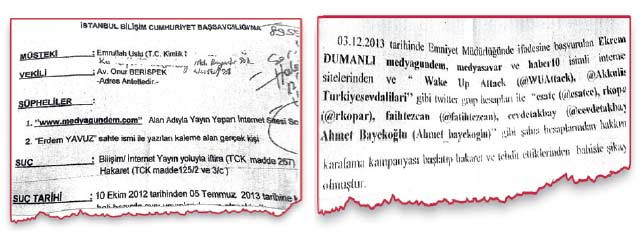 İSTANBUL BİLİŞİM CUMHURİYET BAŞSAVCILIĞI'NA
MÜSTEKİ : Emrullah Uslu (T.C. Kimlik
VEKİLİ : Av. Onur BERISPEK
-Adres Antettedir.-
ŞÜPHELİLER :
1. "www.medyagundem.com" Alan Adıyla Yayın Yapan İnternet Sitesi So
2. "Erdem YAVUZ" sahte ismi ile yazıları kaleme alan gerçek kişi
SUÇ : Bilişim/ İnternet Yayın yoluyla iftira (TCK madde 257)
Hakaret (TCK madde125/2 ve 3/c )
SUÇ TARİHİ : 10 Ekim 2012 tarihinden 05 Temmuz 2013 tarihine
03.12.2013 tarihinde Emniyet Müdürlüğünde ifadesine başvurulan Ekrem
DUMANLI medyagundem, medyasavar ve haber10 isimli internet
sitelerinden ve " Wake Up Attack (@WUAttack), @Akkulis
Turkiyesevdalilari" gibi twitter grup hesapları ile "esatc (@esatce), rkopar
(@rkopar), faihtezcan (@fatihtezcan), cevdetakbay (@cevdetakbay
Ahmet Bayekoğlu (Ahmet_bayekogin)" gibi şahıs hesaplarından hakkım
karalama kampanyası başlatıp hakaret ve tehdit ettiklerinden bahisle şikay
olmuştur.